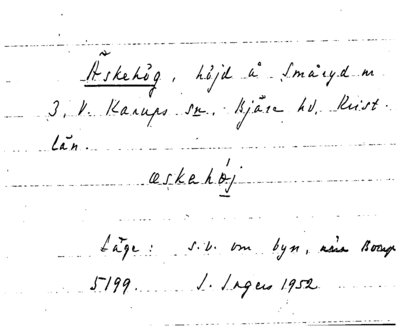 Äskehög, höjd å Smäryd nr
3, V. Karups sn. Bjäre hd, Krist.
län.
æskahöj
Läge: s.v. om byn, nära
5199. I. Ingers 1952